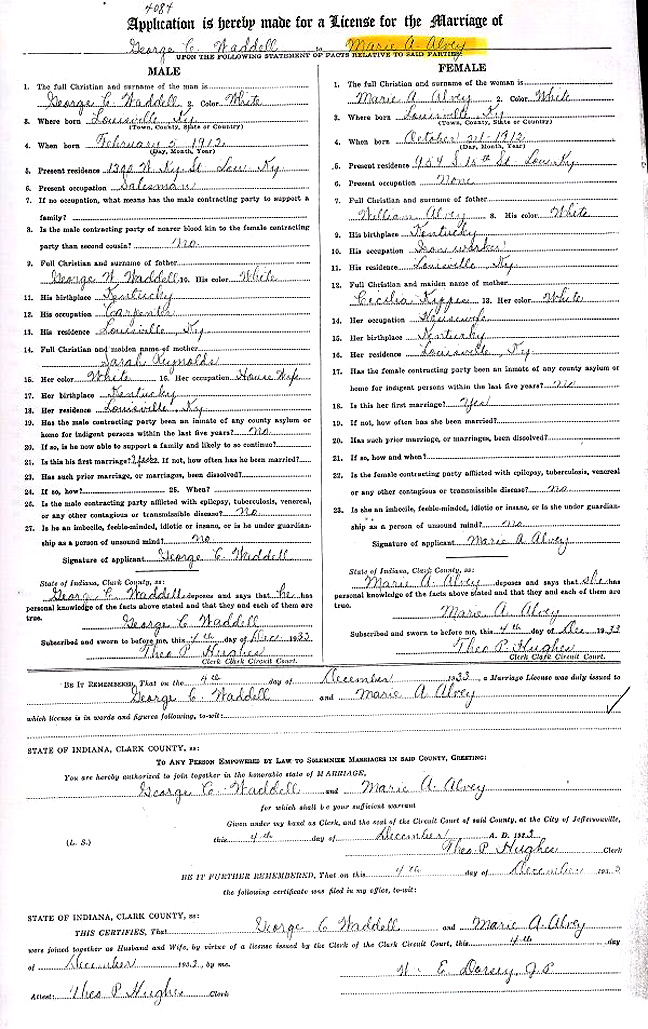 4084
Application is hereby made for a License for the Marriage of
George C. Waddell to Marie A Alvey
UPON THE FOLLOWING STATEMENT OF FACTS RELATIVE TO SAID PARTIES:
MALE
1. The full Christian and surname of the man is
George C. Waddell 2. Color White
3. Where born Louisville, Ky.
(Town, County, State or Country)
4. When born February 5 1912
(Day, Month, Year)
5. Present residence 1300 W. Ky St Lou Ky.
6. Present occupation Salesman
7. If no occupation, what means has the male contracting party to support a
family?
8. Is the male contracting party of nearer blood kin to the female contracting
party than second cousin? No
9. Full Christian and surname of father
George W. Waddell 10. His color White
11. His birthplace Kentucky
12. His occupation Carpenter
13. His residence Louisville, Ky
14. Full Christian and maiden name of mother
Sarah Reynolds
15. Her color White 16. Her occupation House Wife
17. Her birthplace Kentucky
18. Her residence Louisville, Ky
19. Has the male contracting party been an inmate of any county asylum or
home for indigent persons within the last five years? No
20. If so, is he now able to support a family and likely to so continue?
21. Is this his first marriage? Yes 22. If not, how often has he been married?
23. Has such prior marriage, or marriages, been dissolved?
24. If so, how? 25. When?
26. Is the male contracting party afflicted with epilepsy, tuberculosis, venereal,
or any other contagious or transmissible disease? No
27. Is he an imbecile, feeble-minded, idiotic or insane, or is he under guardian-
ship as a person of unsound mind? No
Signature of applicant George C. Waddell
State of Indiana, Clark County, ss:
George C. Waddell deposes and says that he has
personal knowledge of the facts above stated and that they and each of them are
true.
George C. Waddell
Subscribed and sworn to before me, this 4th day of Dec. 1933
Theo P. Hughes
Clerk Clark Circuit Court.
FEMALE
1. The full Christian and surname of the woman is
Marie A Alvey 2. Color White
3. Where born Louisville, Ky
(Town, County, State or Country)
4. When born October 21-1912
(Day, Month, Year)
5. Present residence 954 S 15th St. Lou Ky
6. Present occupation None
7. Full Christian and surname of father
William Alvey 8. His color White
9. His birthplace Kentucky
10. His occupation Iron worker
11. His residence Louisville, Ky.
12. Full Christian and maiden name of mother
Cecilia 13. Her color White
14. Her occupation Housewife
15. Her birthplace Kentucky
16. Her residence Louisville, Ky
17. Has the female contracting party been an inmate of any county asylum or
home for indigent persons within the last five years? No
18. Is this her first marriage? Yes
19. If not, how often has she been married?
20. Has such prior marriage, or marriages, been dissolved?
21. If so, how and when?
22. Is the female contracting party afflicted with epilepsy, tuberculosis, venereal
or any other contagious or transmissible disease? No
23. Is she an imbecile, feeble-minded, idiotic or insane, or is she under guardian-
ship as a person of unsound mind? No
Signature of applicant Marie A Alvey
State of Indiana, Clark County, ss:
Marie A. Alvey deposes and says that she has
personal knowledge of the facts above stated and that they and each of them are
true.
Marie A. Alvey
Subscribed and sworn to before me, this 4th day of Dec. 1933
Theo P. Hughes
Clerk Clark Circuit Court.
BE IT REMEMBERED, That on the 4th day of December 1933, a Marriage License was duly issued to
George C. Waddell and Marie A Alvey
which license is in words and figures following, to-wit:
STATE OF INDIANA, CLARK COUNTY, ss:
TO ANY PERSON EMPOWERED BY LAW TO SOLEMNIZE MARRIAGES IN SAID COUNTY, GREETING:
You are hereby authorized to join together in the honorable state of MARRIAGE,
George C. Waddell and Marie A. Alvey
for which shall be your sufficient warrant
Given under my hand as Clerk, and the seal of the Circuit Court of said County, at the City of Jeffersonville,
(L. S.) this 4th day of December A. D. 1933
Theo P. Hughes Clerk
BE IT FURTHER REMEMBERED, That on this 4th day of December 1933
the following certificate was filed in my office, to-wit:
STATE OF INDIANA, CLARK COUNTY, ss:
THIS CERTIFIES, That George C Waddell and Marie A. Alvey
were joined together as Husband and Wife, by virtue of a license issued by the Clerk of the Clark Circuit Court, this 4th day
of December 1933, by me.
E Dorsey J.P.
Attest: Theo P Hughes Clerk